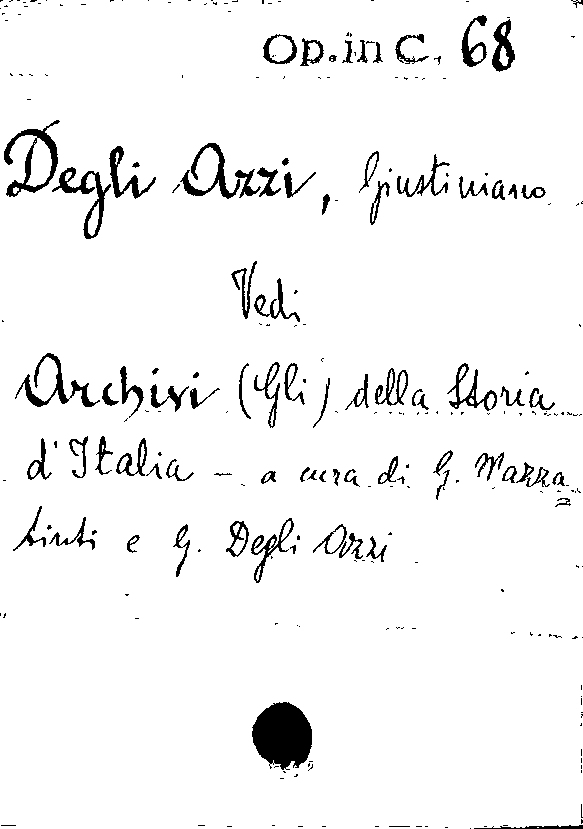 Op. in C. 68
Degli Azzi, Giustiniano
Vedi
Archivi (Gli) della Storia
d'Italia - a cura di G. Mazza=
tinti e G. Degli Azzi